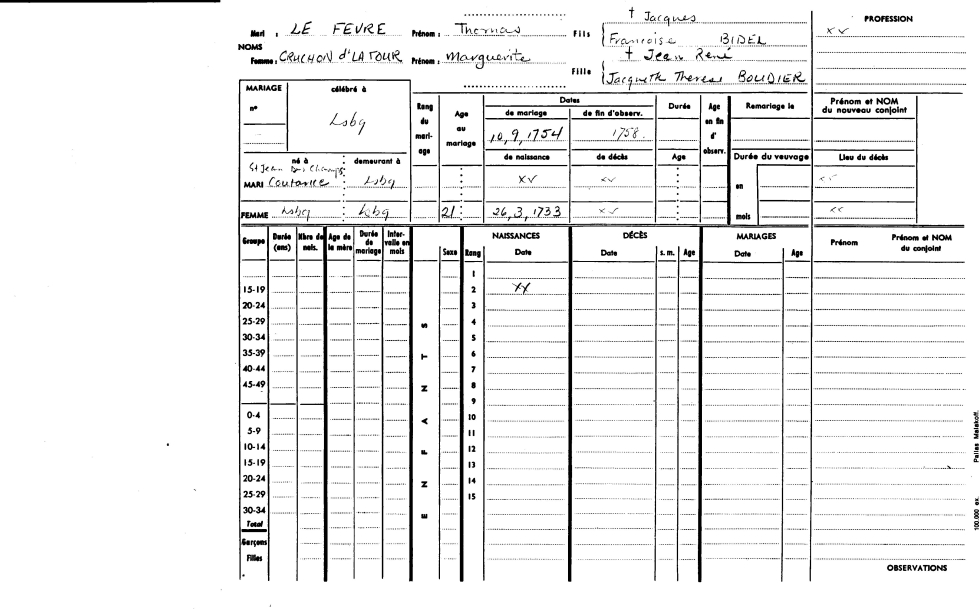 † Jacques
PROFESSION
Mari : LE FEVRE Prénom : Thomas Fils Francoise BIDEL
NOMS † Jean René
Femme : CRUCHON d'LATOUR Prénom : Marguerite Fille Jacqueth Therese BOUDIER
MARIAGE célébré à Rang du mariage Age au mariage Dates Durée Age en fin d' observ. Remariage le Prénom et NOM du nouveau conjoint
n° Lsbg de mariage de fin d'observ.
10,9,1754 1758.
né à demeurant à de naissance de décès Age Durée du veuvage Lieu du décès
St Jean
MARI Coutance Lsbg en
FEMME Lsbg Lsbg 21 26,3,1733 mois
Groupe Durée (ans) Nbre de nais. Age de la mère Durée de mariage Intervalle en mois ENFANTS Sexe Rang NAISSANCES Date DÉCÈS Date s. m. Age MARIAGES Date Age Prénom Prénom et NOM du conjoint
1
15-19 2
20-24 3
25-29 4
30-34 5
35-39 6
40-44 7
45-49 8
9
0-4 10
5-9 11
10-14 12
15-19 13
20-24 14
25-29 15
30-34
Total
Garçons
Filles
OBSERVATIONS
100.000 ex. Pallas Malakoff.